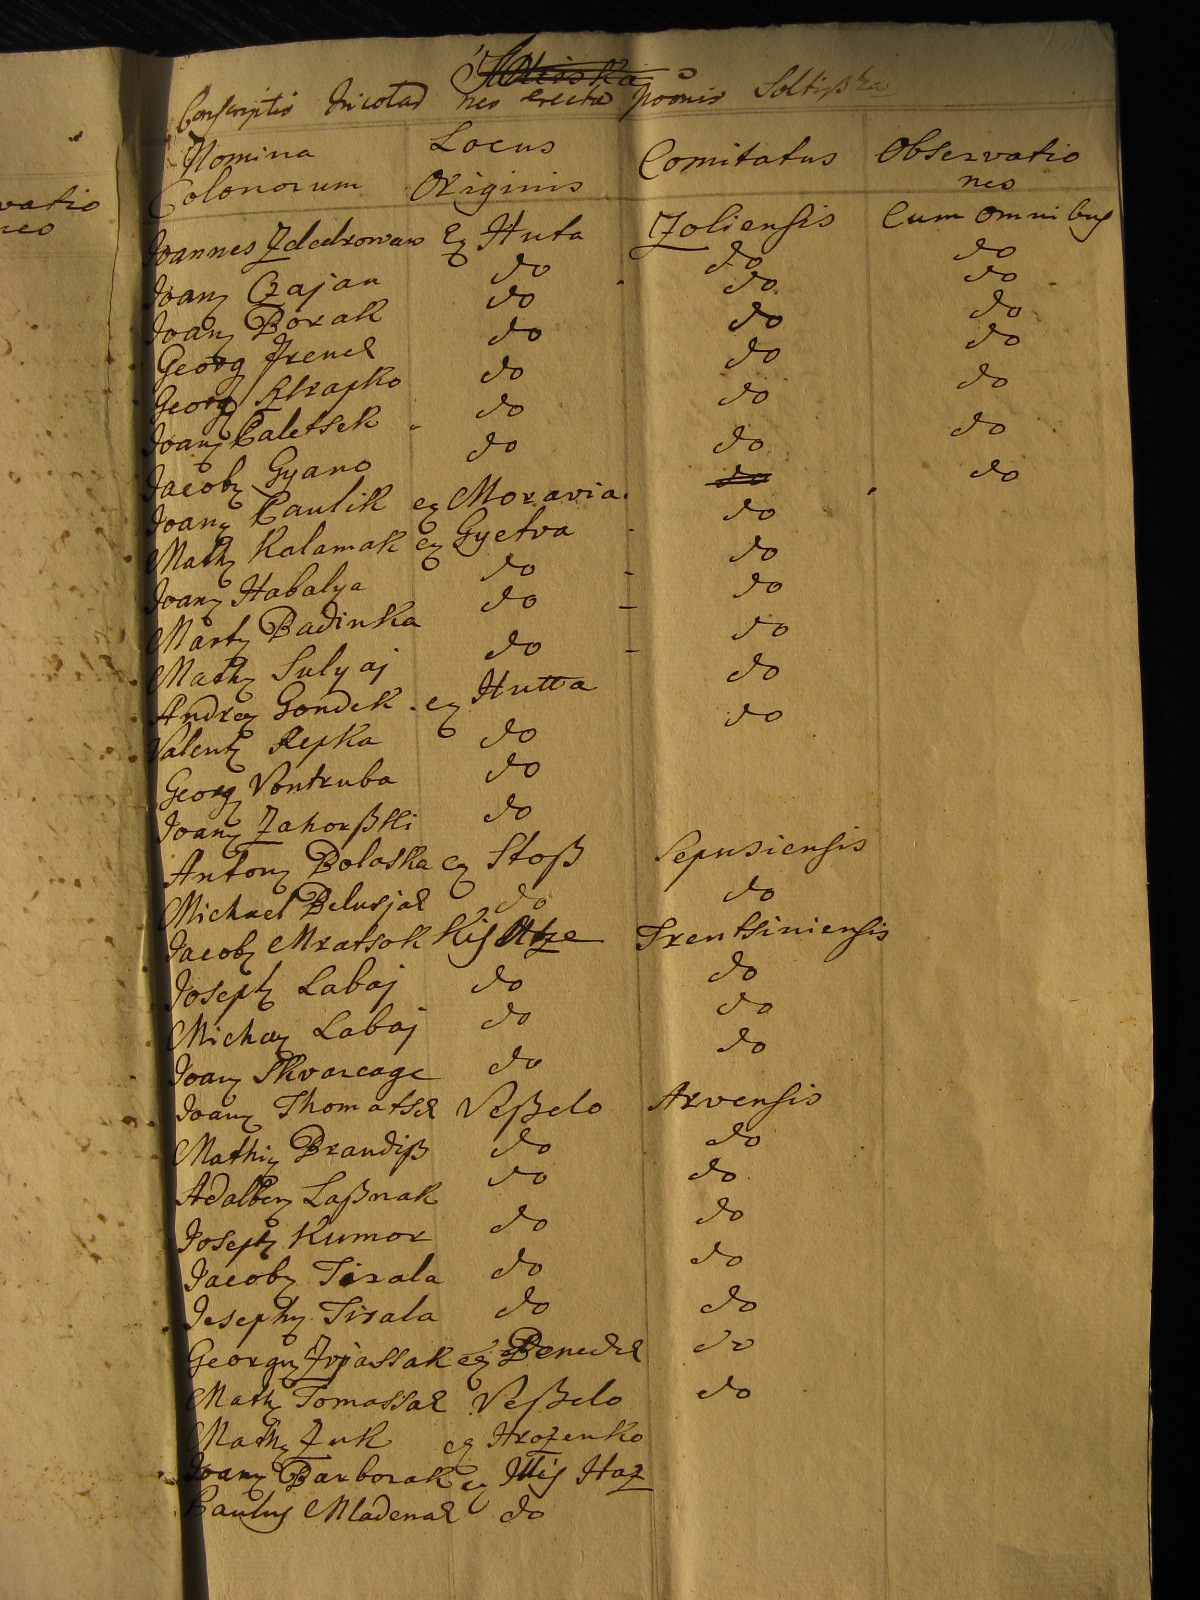 vatio
nes
Conscriptio Incolar neo erectæ Possnis Soltißka
Nomina Colonorum Locus Originis Comitatus Observationes
Joannes Zdedrowan Ex Huta Zoliensis Cum omnibus
Joanȝ Czajan do do do
Joanȝ Borak do do do
Georg Frencl do do do
Georg Skrapko do do do
Joanȝ Paletsek do do do
Jacobȝ Gyano do do do
Joanȝ Paulik ex Moravia do
Mathȝ Kalamak ex Gyetva do
Joanȝ Habalya do do
Martȝ Badinka do do
Mathȝ Sulyaj do do
Andreȝ Gondek ex Hutta do
Valentȝ Repka do do
Georg Vontruba do
Joanȝ Zahorßki do
Antonȝ Bolaska ex Stoß Sepusiensis
Michael Belusjak do do
Jacobȝ Mratsok Kis Utze Trentsiniensis
Josephȝ Labaj do do
Michaȝ Labaj do do
Joanȝ Skvareage do do
Joanȝ Thomatsek Veßelo Arvensis
Mathiȝ Brandiß do do
Adalberȝ Laßnak do do
Josephȝ Kumor do do
Jacobȝ Tirala do do
Josephȝ Tirala do do
Georgiȝ ex Benedek do
Mathȝ Tomassek Veßelo do
Mathȝ Zuk ex Hrozenko
Joanȝ Barborak ex Illis Haz
Paulus Mladenek do